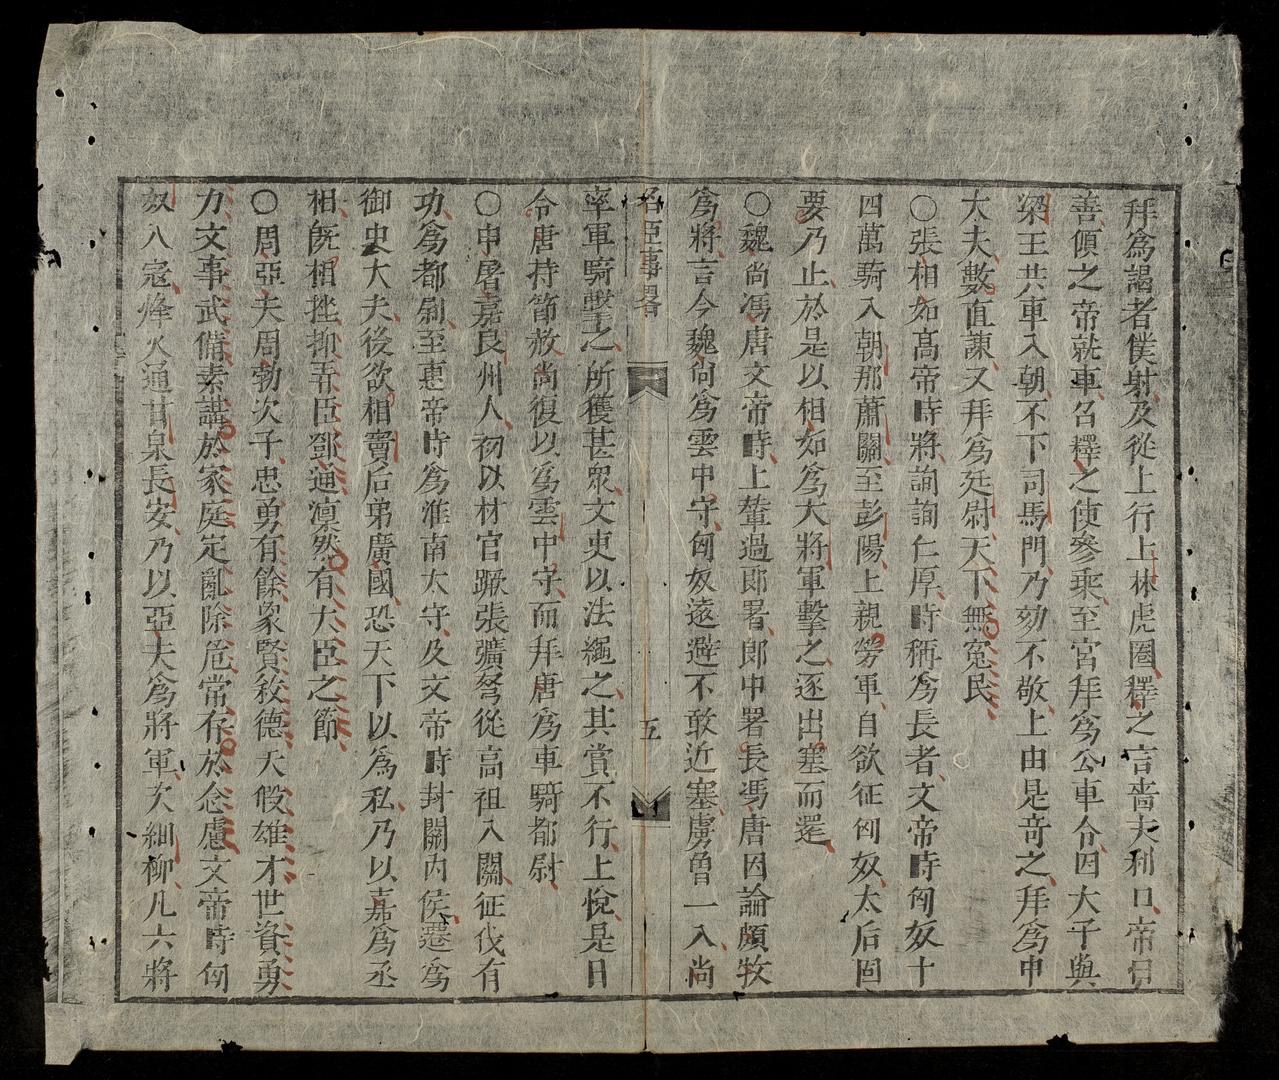 拜爲謁者僕射及從上行上林虎圈釋之言嗇夫利口帝曰
善傾之帝就車召釋之使參乘至宮拜爲公車令因太子與
梁王共車入朝不下司馬門乃劾不敬上由是竒之拜爲中
大夫數直諫又拜爲廷尉天下無冤民
〇張相如髙帝時將詢詢仁厚時稱爲長者文帝時匈奴十
四萬騎入朝那蕭關至彭陽上親勞軍自欲征匈奴太后固
要乃止於是以相如爲大將軍擊之逐出塞而還
〇魏尚馮唐文帝時上輦過郎署郎中署長馮唐因論頗牧
爲將言今魏尚爲雲中守匈奴遠避不敢近塞虜曾一入尚
名臣事畧
五
率軍騎擊之所獲甚衆文吏以法繩之其賞不行上悅是日
令唐持節赦尚復以爲雲中守而拜唐爲車騎都尉
〇申屠嘉良州人初以材官蹶張彍弩從高祖入關征伐有
功爲都尉至惠帝時爲淮南太守及文帝時封關内侯遷爲
御史大夫後欲相竇后弟廣國恐天下以爲私乃以嘉爲丞
相旣相挫抑弄臣鄧通凛然有大臣之節
〇周亞夫周勃次子忠勇有餘象賢敎德天假雄才世資勇
力文事武備素講於家庭定亂除危常存於念慮文帝時匈
奴入寇烽火通甘泉長安乃以亞夫爲將軍次細柳凡六將